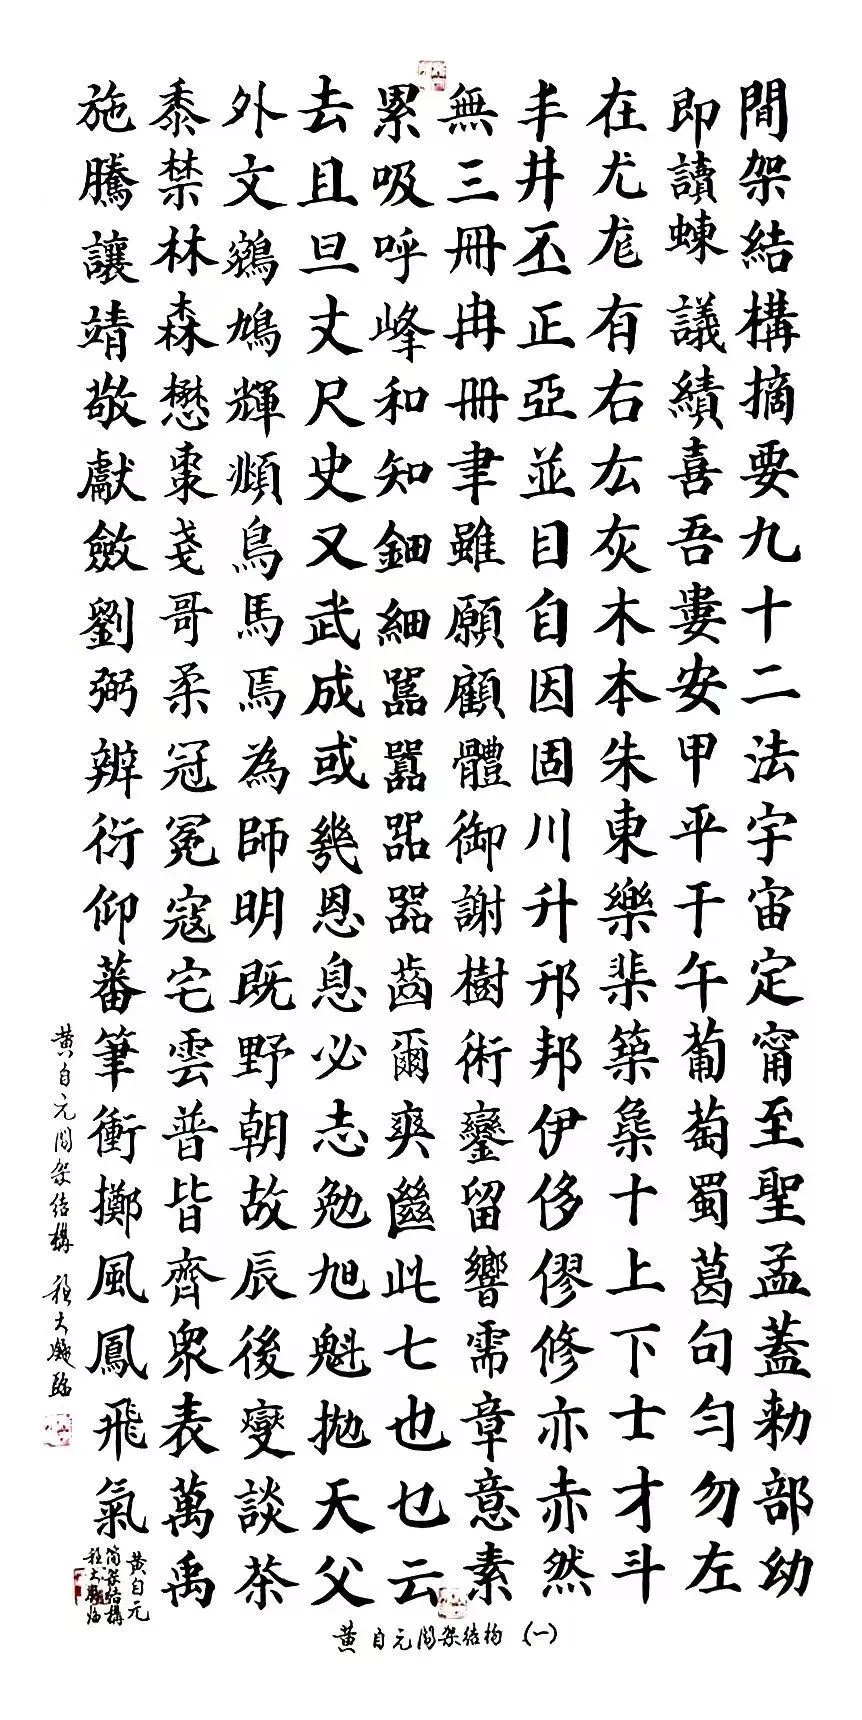 間架結構摘要九十二法宇宙定甯至聖孟蓋勑部幼
即讀蝀議績喜吾婁安甲平干午葡萄蜀葛句勻勿左
在尤尨有右厷灰木本朱東樂築梟十上下士才斗
丰井丕正亞並目自因固川升邢邦伊侈僇修亦赤然
無三冊冉冊聿雖願顧體御謝樹術鑾留響需章意素
累吸呼峰和知鈿細嚚囂㗊器齒爾爽此七也乜云
去且旦丈尺史又武成或幾恩息必志勉旭魁拋天父
外文鳩輝瀕鳥馬焉為師明既野朝故辰後變談茶
黍禁林森懋棗戔哥柔冠冕寇宅雲普皆齊眾表萬禹
施騰讓靖敬獻斂劉弼辨衍仰蕃筆衝擲風鳳飛氣
黄自元間架结構 程大臨
黄自元
間架结構
程大臨
黄自元間架结构（一）